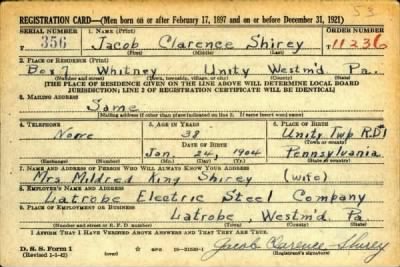 53
REGISTRATION CARD—(Men born on or after February 17, 1897 and on or before December 31, 1921)
SERIAL NUMBER 1. NAME (Print) ORDER NUMBER
T 356 Jacob Clarence Shirey T 11236
(First) (Middle) (Last)
2. PLACE OF RESIDENCE (Print)
Box 7 Whitney Unity Westm'd Pa.
(Number and street) (Town, township, village, or city) (County) (State)
[THE PLACE OF RESIDENCE GIVEN ON THE LINE ABOVE WILL DETERMINE LOCAL BOARD
JURISDICTION; LINE 2 OF REGISTRATION CERTIFICATE WILL BE IDENTICAL]
3. MAILING ADDRESS
Same
[Mailing address if other than place indicated on line 2. If same insert word same]
4. TELEPHONE 5. AGE IN YEARS 6. PLACE OF BIRTH
None 38 Unity Twp R.D.1
DATE OF BIRTH (Town or county)
Jan. 24, 1904 Pennsylvania
(Exchange) (Number) (Mo.) (Day) (Yr.) (State or country)
7. NAME AND ADDRESS OF PERSON WHO WILL ALWAYS KNOW YOUR ADDRESS
Mrs Mildred King Shirey (wife)
8. EMPLOYER'S NAME AND ADDRESS
Latrobe Electric Steel Company
9. PLACE OF EMPLOYMENT OR BUSINESS
Latrobe, Westm'd. Pa.
(Number and street or R. F. D. number) (Town) (County) (State)
I AFFIRM THAT I HAVE VERIFIED ABOVE ANSWERS AND THAT THEY ARE TRUE.
D. S. S. Form 1
(Revised 1-1-42) (over) Jacob Clarence Shirey